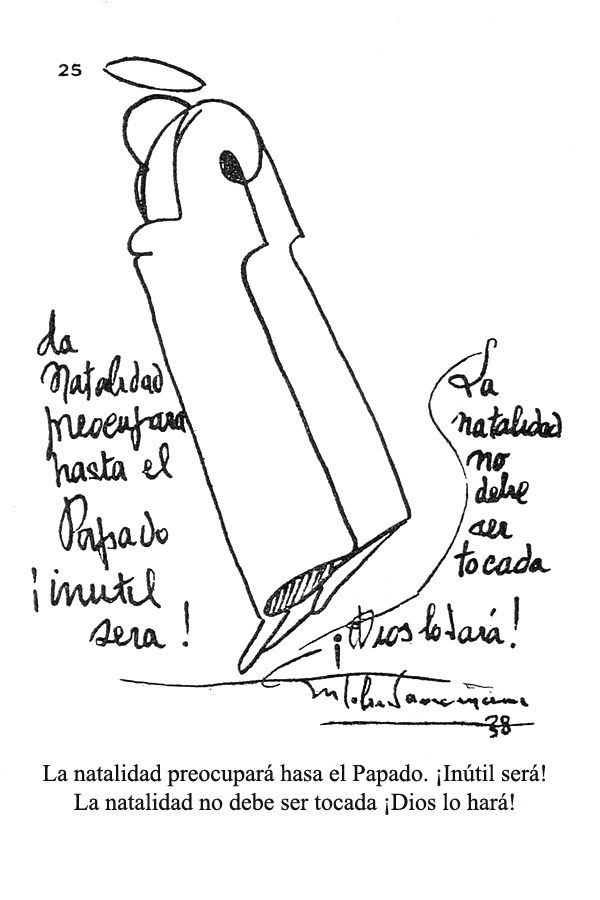 25
La
natalidad
preocupara
hasta el
Papado
¡inutil
sera!
La
natalidad
no
debe
ser
tocada
¡Dios lo hará!
38
La natalidad preocupará hasa el Papado. ¡Inútil será!
La natalidad no debe ser tocada ¡Dios lo hará!